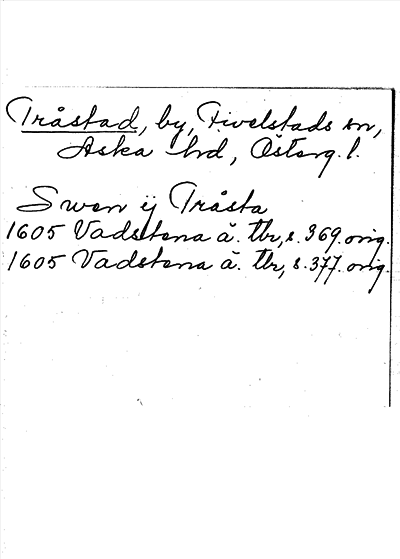 Tråstad, by, Fivelstads sn,
Aska hd, Österg. l.
Swen ÿ Tråsta
1605 Vadstena ä. tbr, s. 369. orig.
1605 Vadstena ä. tbr, s. 377. orig.